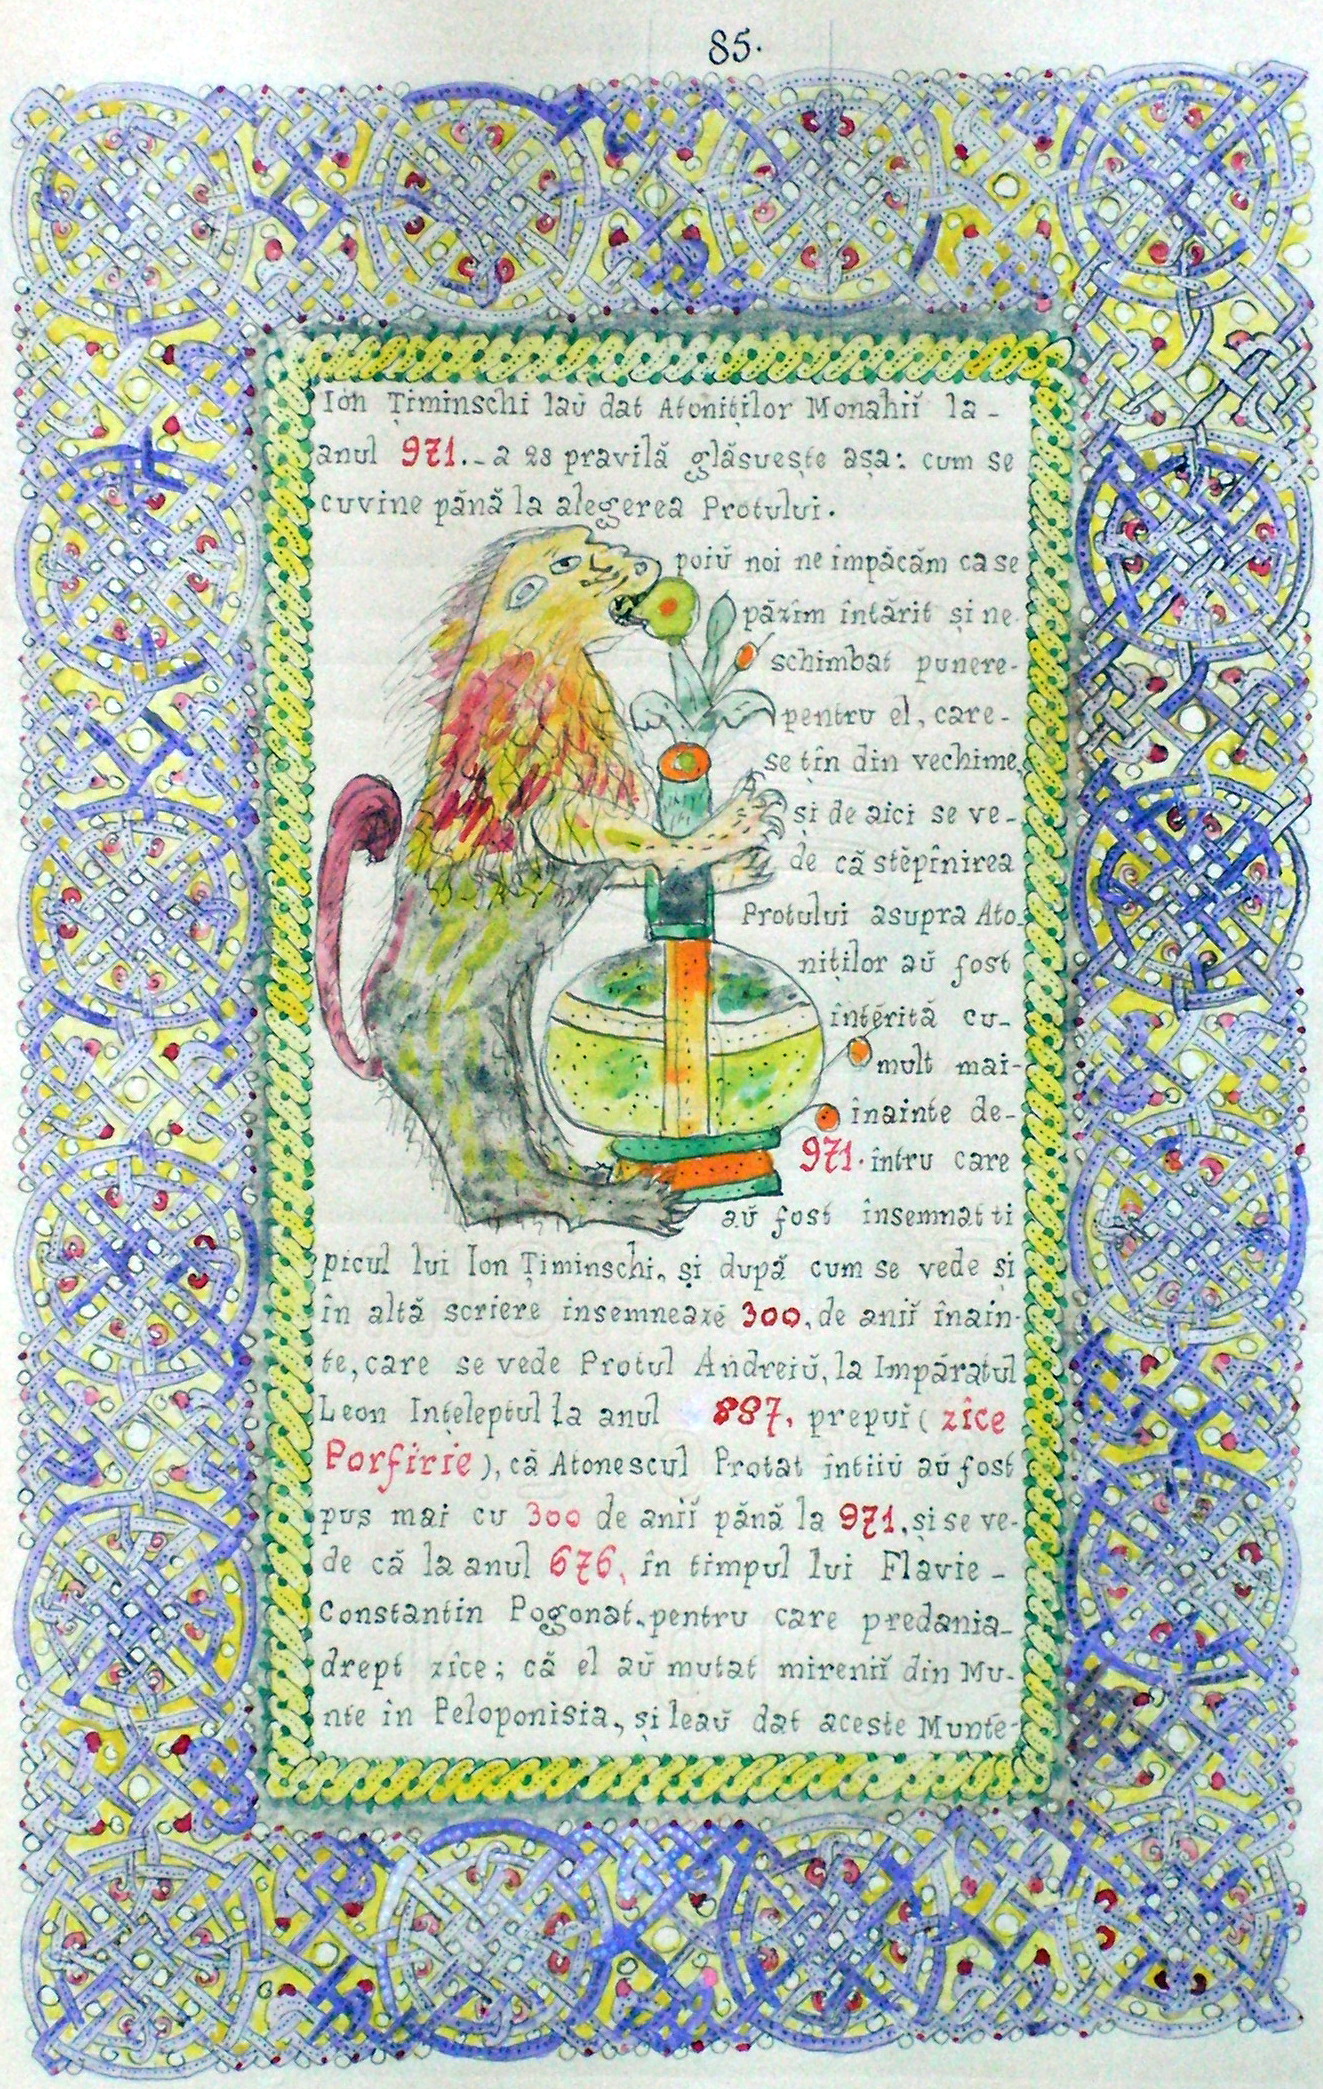 85.
Ion Țiminschi laŭ dat Atoniților Monahiĭ la-
anul 971.- a 28 pravilă glăsuește așa: cum se
cuvine pănă la alegerea Protului.
poiŭ noi ne împăcăm ca se
păzim întărit și ne-
schimbat punere-
pentru el, care-
se țin din vechime,
și de aici se ve-
de că stĕpînirea
Protului asupra Ato-
niților aŭ fost
întĕrită cu-
mult mai-
înainte de-
971. întru care
aŭ fost însemnat ti
picul lui Ion Țiminschi, și după cum se vede și
în altă scriere însemnează 300, de aniĭ înain-
te, care se vede Protul Andreiŭ, la Impăratul
Leon Ințeleptul la anul 887, prepuĭ (zîce
Porfirie), că Atonescul Protat întiiŭ aŭ fost
pus mai cu 300 de aniĭ pănă la 971, și se ve-
de că la anul 676, în timpul lui Flavie-
Constantin Pogonat, pentru care predania-
drept zîce; că el aŭ mutat mireniĭ din Mu-
nte în Peloponisia, și leaŭ dat aceste Munte-